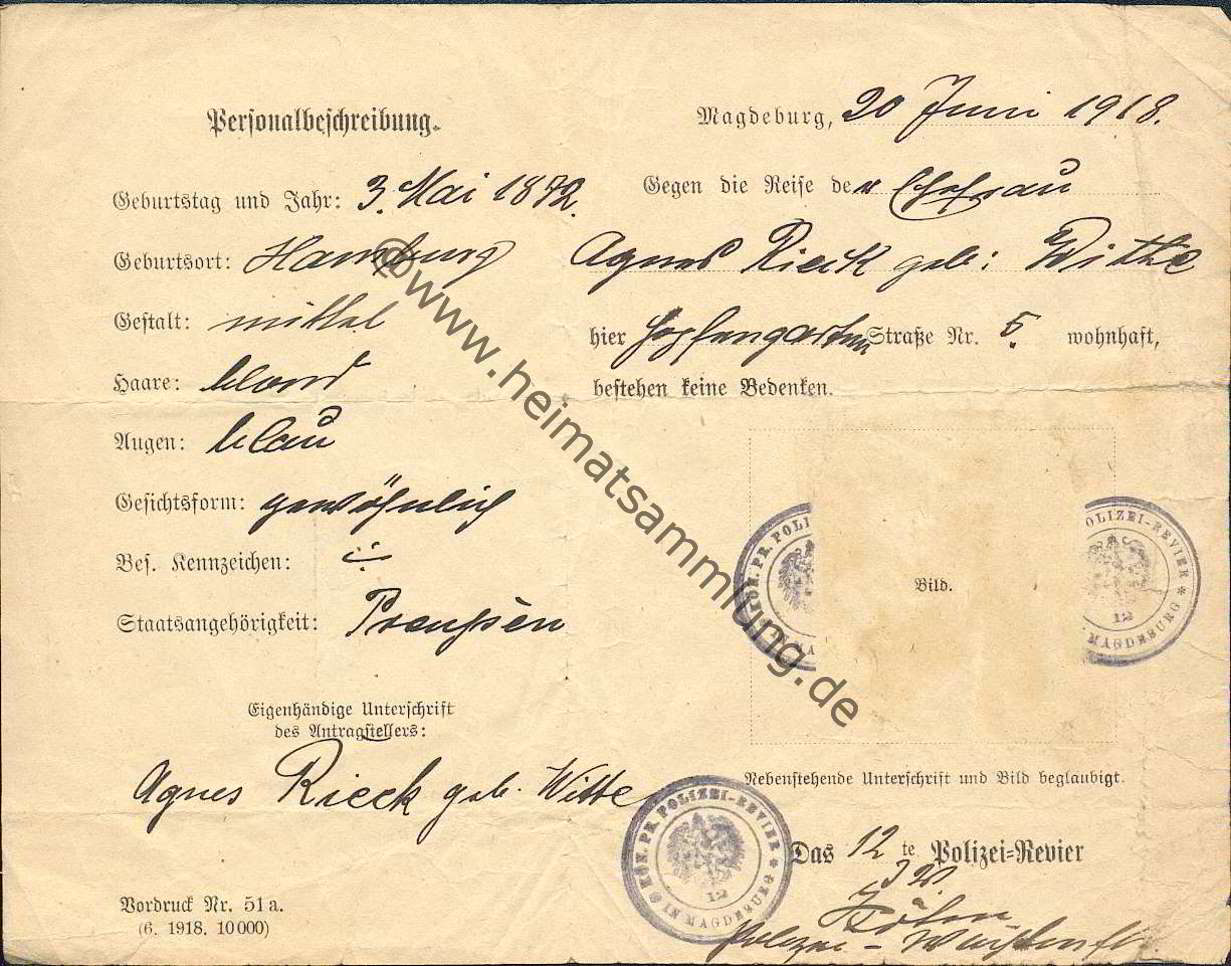 Personalbeschreibung.
Geburtstag und Jahr: 3. Mai 1872.
Geburtsort: Hamburg
Gestalt: mittel
Haare: blond
Augen: blau
Gesichtsform: gewöhnlich
Bes. Kennzeichen: ÷
Staatsangehörigkeit: Preußen
Eigenhändige Unterschrift
des Antragstellers:
Agnes Rieck geb. Witte
Vordruck Nr. 51a.
(6. 1918. 10000)
Magdeburg, 20 Juni 1918.
Gegen die Reise der Ehefrau
Agnes Rieck geb: Witte
hier Hopfengarten Straße Nr. 5. wohnhaft,
bestehen keine Bedenken.
KÖN. PR. POLI
Bild.
OLIZEI-REVIER *
12
MAGDEBURG
Nebenstehende Unterschrift und Bild beglaubigt.
KÖN. PR. POLIZEI-REVIER * IN MAGDEBURG
12
Das 12 te Polizei-Revier
I.V.
@www.heimatsammlung.de